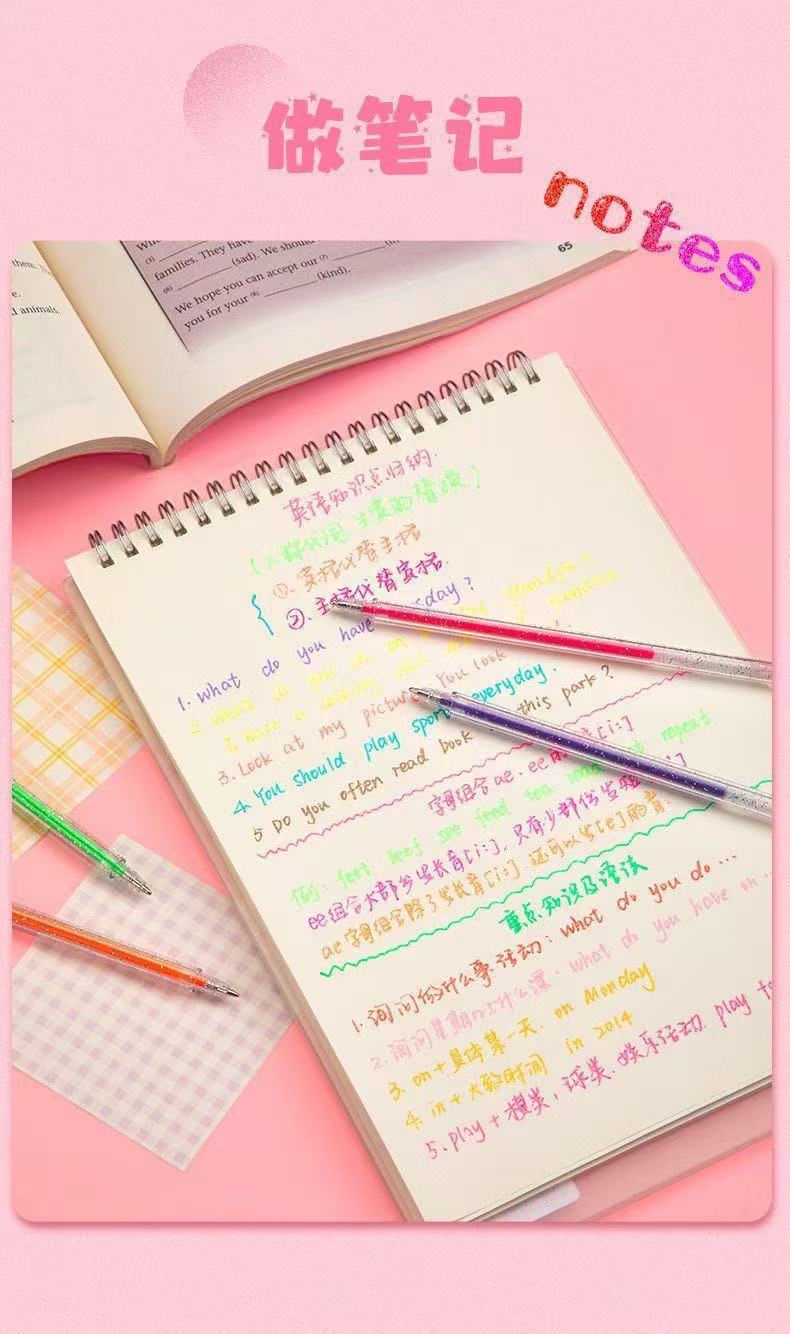 做笔记
notes
them. The
families. They have
(sad). We should
We hope you can accept our (7)
you for your (8) (kind).
65
animals.
英语知识点归纳.
(人称代词 主宾的替换)
①. 宾格代替主格
②. 主格代替宾格.
1. What do you have sday?
2. What do you do on grandpa?
I have a cooking
3. Look at my pictu You look
4. You should play spor everyday.
5 Do you often read book this park?
字母组合 ae. ee 音[i:]
例: feet beef see feed tea read repeat
ee组合大部分发长音[i:], 只有少部份发短 i]
ae字母组合除了发长音[i:]. 还可以发[e]的音.
重点知识及语法
1. 询问你什么事活动: what do you do ...
2. 询问星期几上什么课: what do you have on ...
3. on + 具体某一天. on Monday
4. in + 大致时间 in 2014
5. play + 棋类, 球类. 娱乐活动. play fo